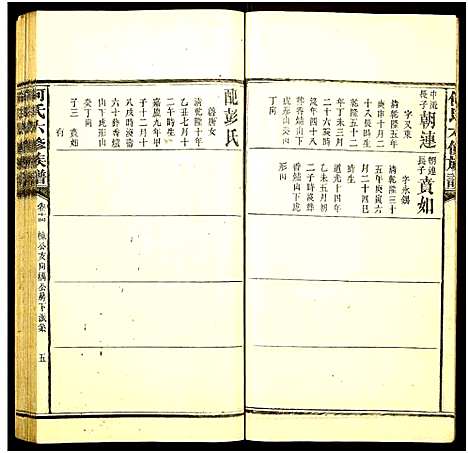 何氏六修族譜
中流長子
朝連
字又東
清乾隆五年
庚申十月初
十八辰時生
乾隆五十二
年丁未三月
二十六戌時
歿年四十八
葬香爐山下
虎形山内
丁向
朝連長子
貴如
字永錫
清乾隆三十
五年庚寅六
月二十四巳
時生
道光十四年
乙未五月初
二子時歿葬
香爐山下虎
形内
配彭氏
善唐女
清乾隆十年
乙丑七月初
二午時生
嘉慶九年甲
子十二月十
八戌時歿年
六十葬香爐
山下虎形山
癸丁向
子三 貴如
有
何氏六修族譜
卷十四
公支
公房下派系
五